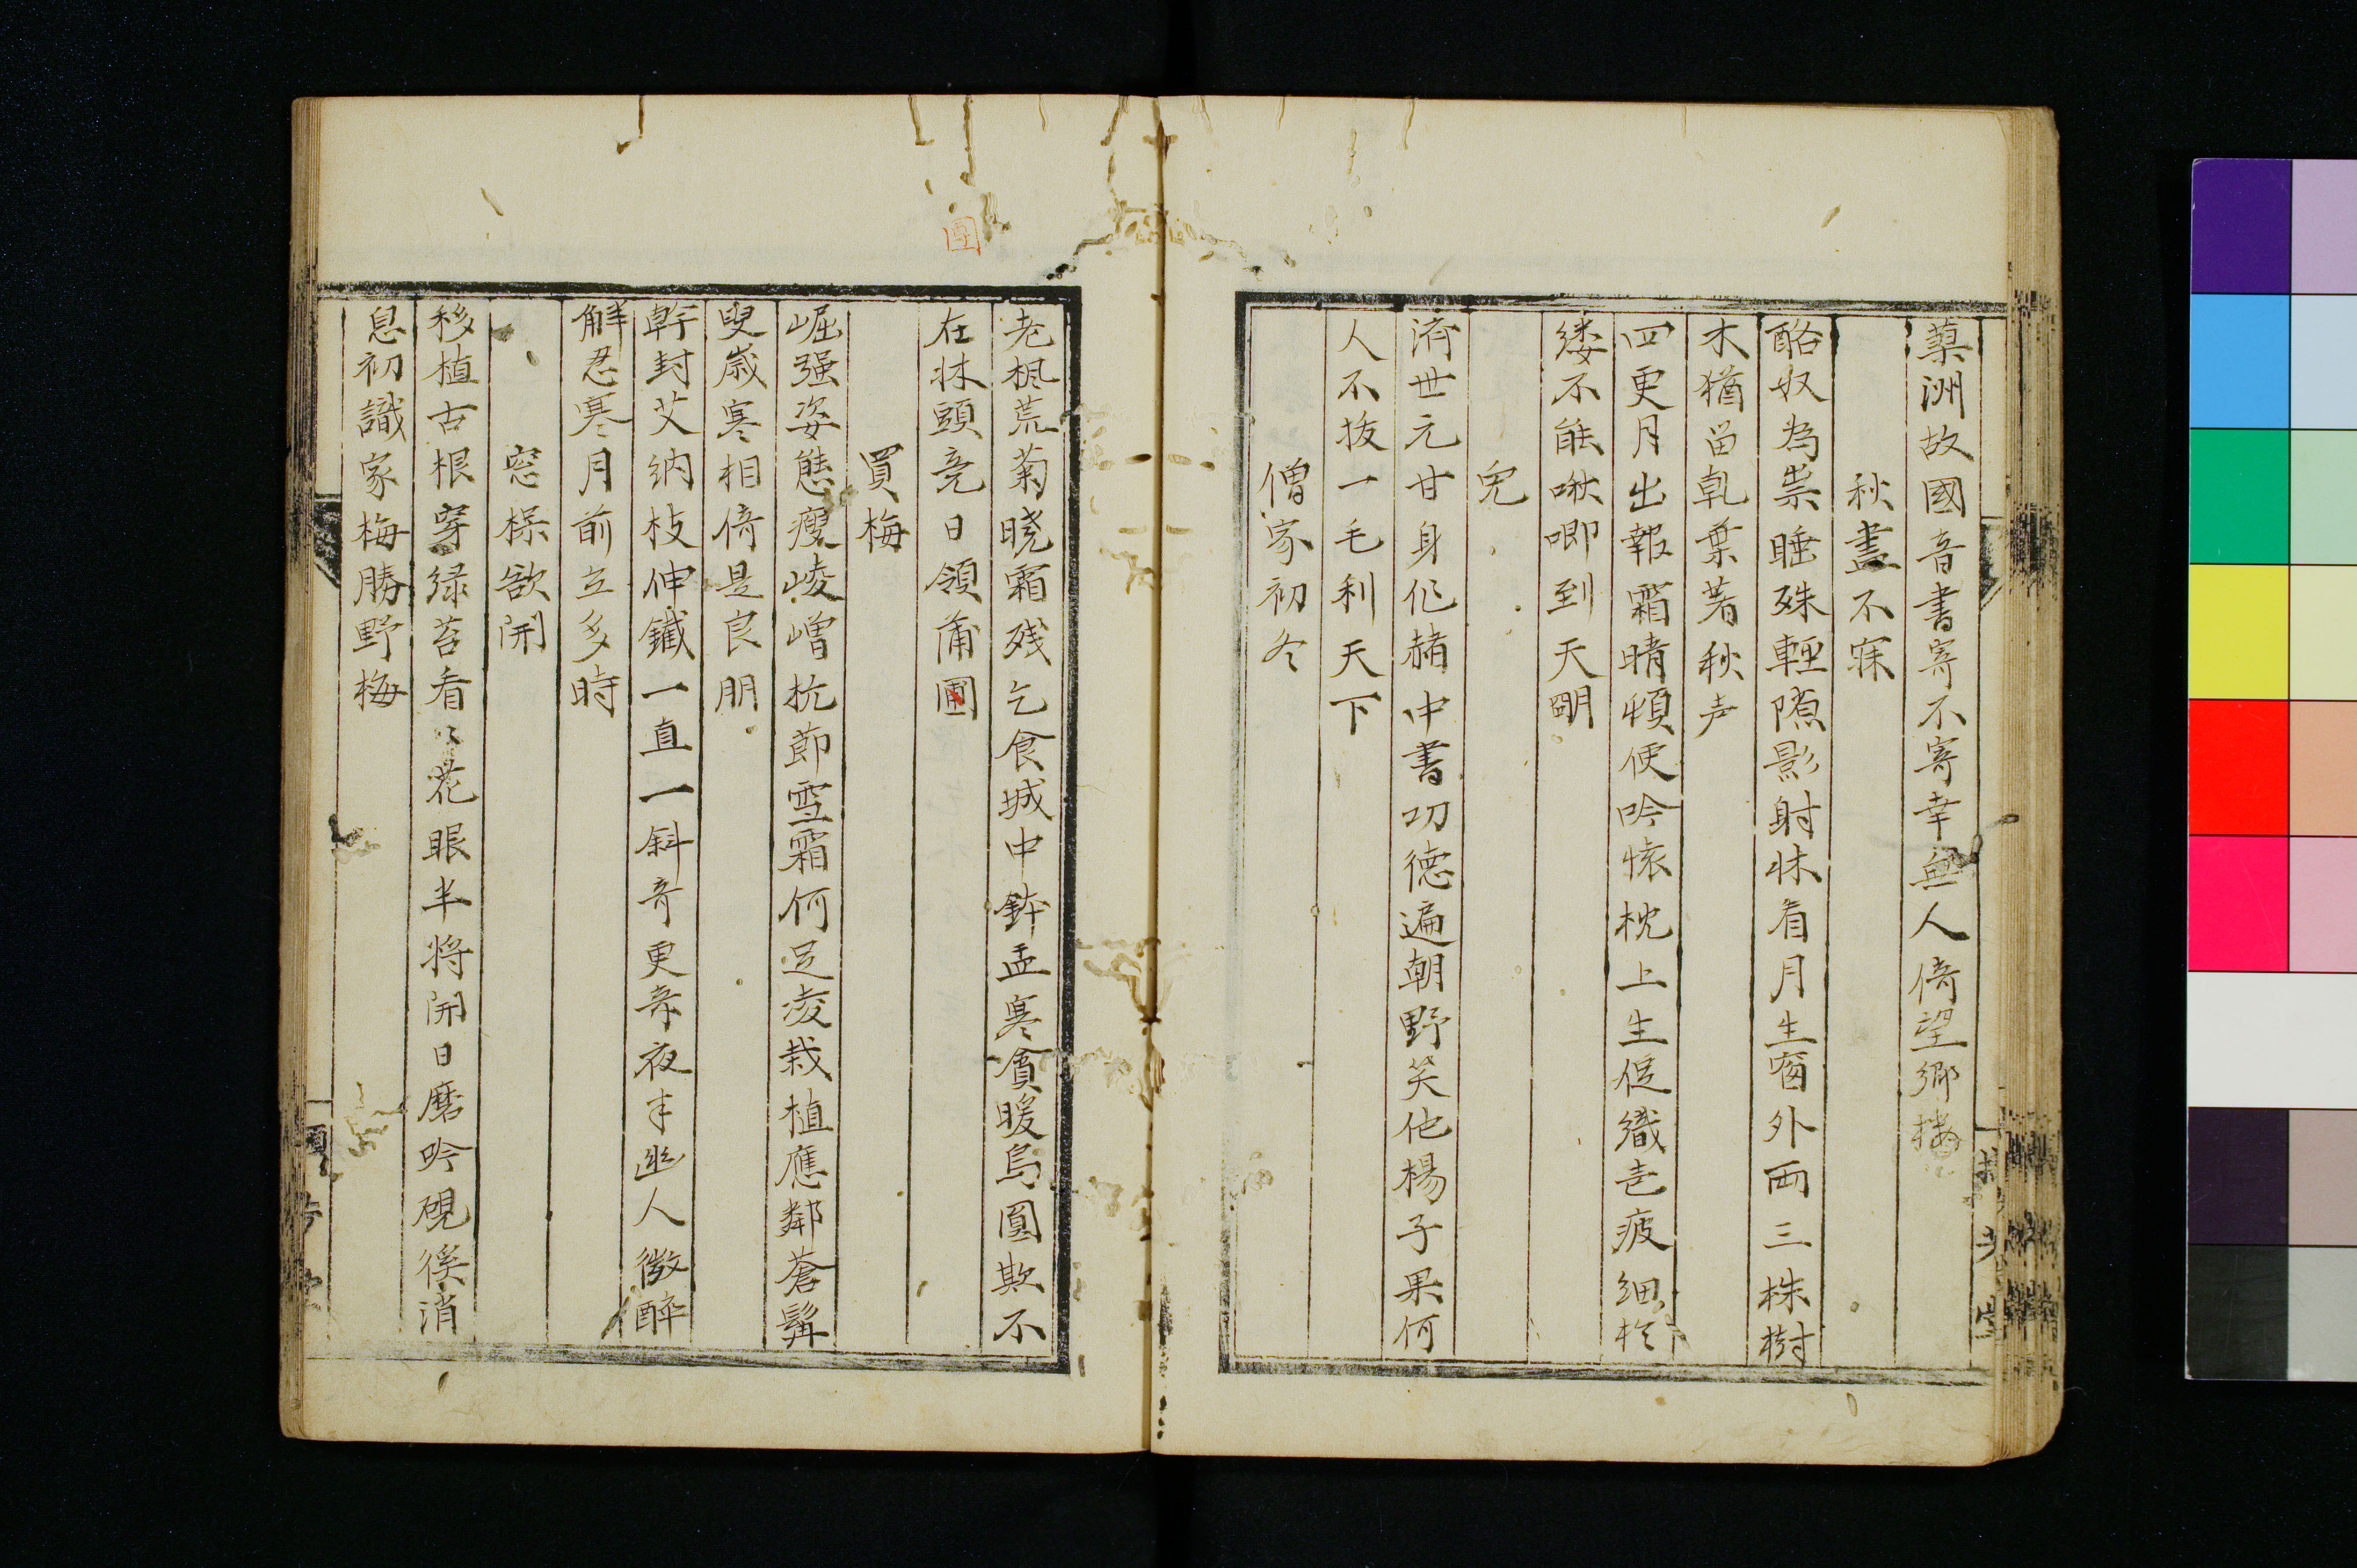 蘃洲故國音書寄不寄幸無人倚望郷楼
秋盡不寐
酩奴為祟睡殊輕隙影射牀看月生窗外両三株樹
木猶留乹葉著秋声
四更月出報霜晴頓便吟懐枕上生促織老疲細於
縷不能啾唧到天明
兎
済世元甘身化赭中書功徳遍朝野笑他楊子果何
人不抜一毛利天下
僧家初冬
老楓荒菊暁霜残乞食城中鉢盂寒貪暖烏圓欺不
在牀頭竞日領蒲團
團
買梅
崛强姿態瘦崚嶒抗節雪霜何足凌栽植應鄰蒼髯
叟歳寒相倚是良朋
幹封艾納枝伸鐵一直一斜奇更奇夜半幽人微酔
觧忍寒月前立多時
窓梅欲開
移植古根穿緑苔看〻花眼半将開日磨吟硯徯消
息初識家梅勝野梅